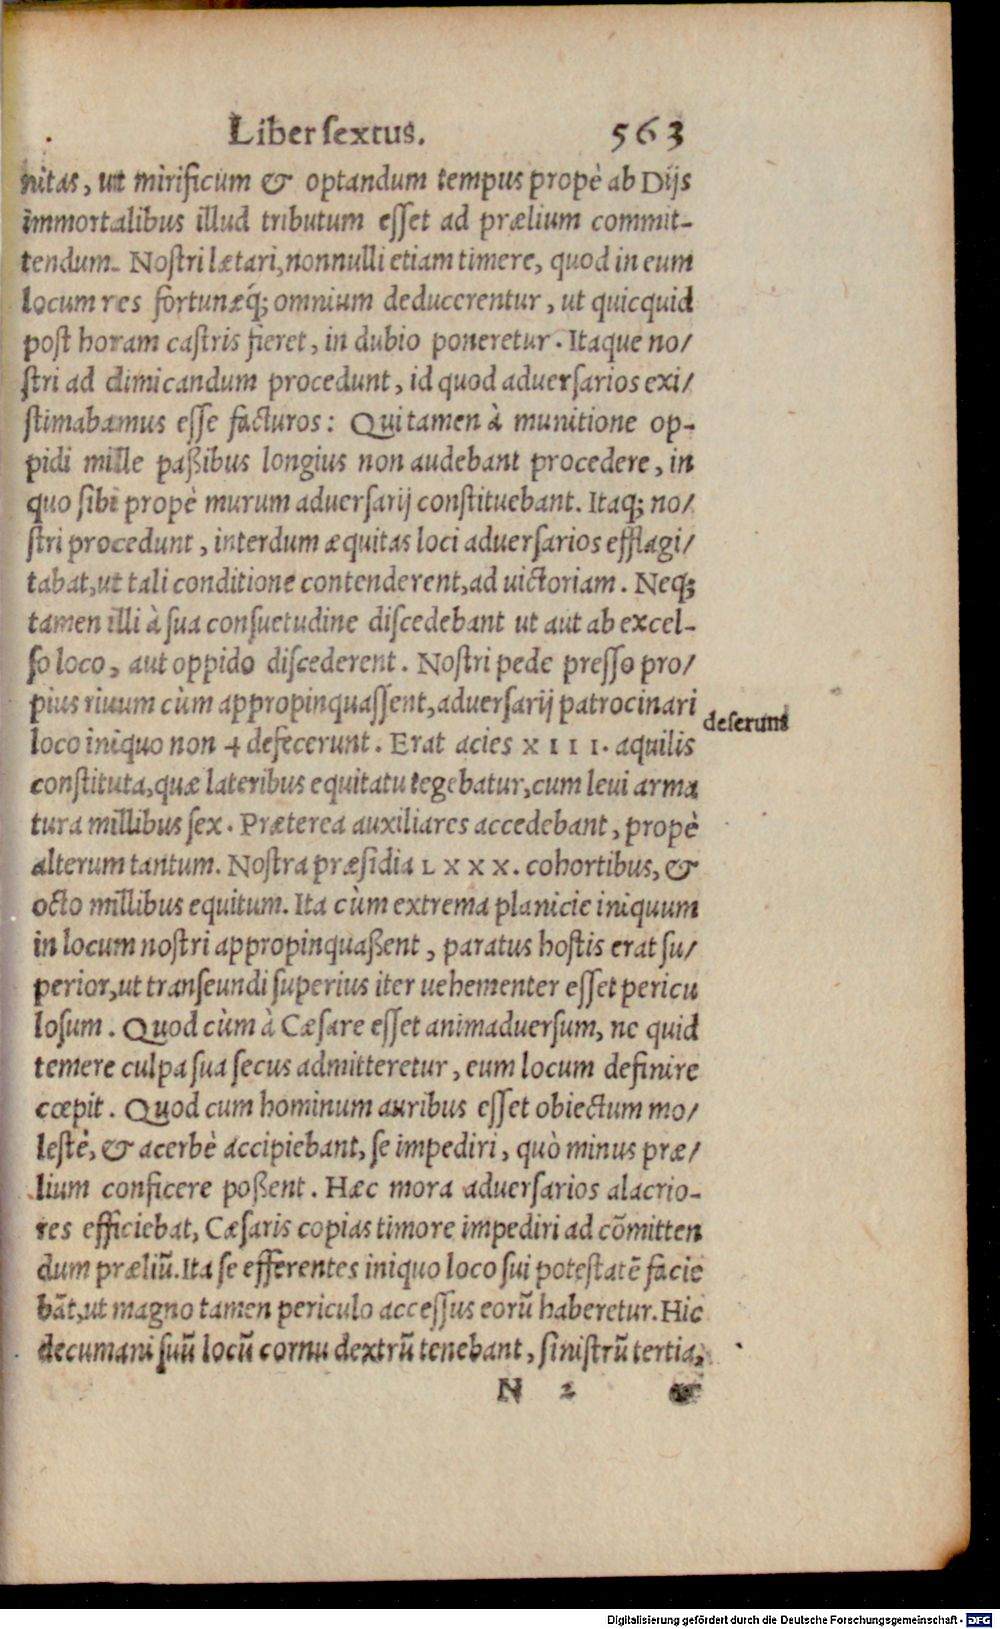 Liber sextus. 563
nitas, ut mirificum & optandum tempus propè ab Dijs
immortalibus illud tributum esset ad prælium commit-
tendum. Nostri lætari, nonnulli etiam timere, quod in eum
locum res fortunæq́; omnium deducerentur, ut quicquid
post horam castris fieret, in dubio poneretur. Itaque no/
stri ad dimicandum procedunt, id quod adversarios exi/
stimabamus esse facturos: Qui tamen à munitione op-
pidi mille paßibus longius non audebant procedere, in
quo sibi propè murum adversarij constituebant. Itaq; no/
stri procedunt, interdum æquitas loci adversarios efflagi/
tabat, ut tali conditione contenderent, ad uictoriam. Neq;
tamen illi à sua consuetudine discedebant ut aut ab excel-
so loco, aut oppido discederent. Nostri pede presso pro/
pius riuum cùm appropinquassent, adversarij patrocinari
loco iniquo non ⁜ defecerunt. Erat acies XIII. aquilis
deserunt
constituta, quæ lateribus equitatu tegebatur, cum levi arma
tura millibus sex. Præterea auxiliares accedebant, propè
alterum tantum. Nostra præsidia LXXX. cohortibus, &
octo millibus equitum. Ita cùm extrema planicie iniquum
in locum nostri appropinquaßent, paratus hostis erat su/
perior, ut transeundi superius iter uehementer esset pericu
losum. Quod cùm à Cæsare esset animaduersum, ne quid
temere culpa sua secus admitteretur, eum locum definire
cœpit. Quod cum hominum auribus esset obiectum mo/
lestè, & acerbè accipiebant, se impediri, quò minus præ/
lium conficere poßent. Hæc mora adversarios alacrio-
res efficiebat, Cæsaris copias timore impediri ad cōmitten
dum præliũ. Ita se efferentes iniquo loco sui potestatē facie
bāt, ut magno tamen periculo accessus eorũ haberetur. Hic
decumani suũ locũ cornu dextrũ tenebant, sinistrũ tertia,
N 2 &
Digitalisierung gefördert durch die Deutsche Forschungsgemeinschaft - DFG